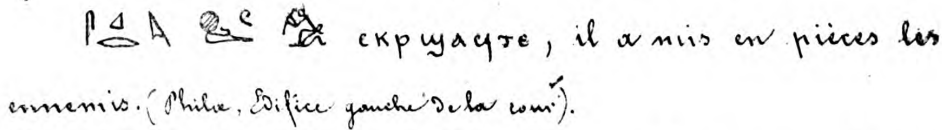 ⲥⲕⲣϣⲁϥⲧⲉ, il a mis en pièces les
ennemis. (Philæ, Edifice gauche de la cour).